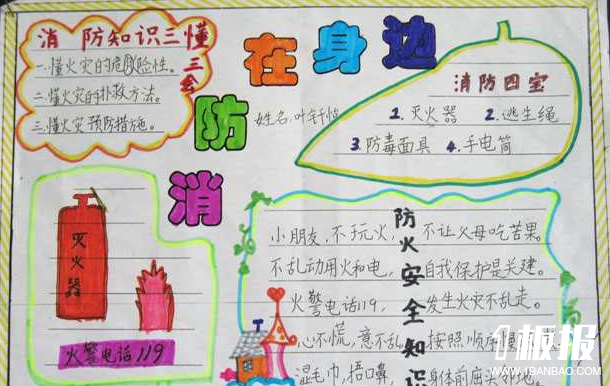 消防在身边
消防知识三懂三会
一.懂火灾的危险性。
二.懂火灾的扑救方法。
三.懂火灾预防措施。
姓名:叶
消防四宝
1.灭火器 2.逃生绳
3.防毒面具 4.手电筒
灭火器
火警电话119
防火安全知识
小朋友,不玩火, 不让父母吃苦果。
不乱动用火和电, 自我保护是关建。
火警电话119, 发生火灾不乱走。
心不慌,意不乱, 按照顺序
湿毛巾,捂口鼻, 身体前屈
板报
WWW.1BANBAO.COM